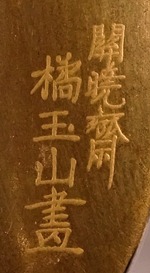 開曉齋
橘玉山畫